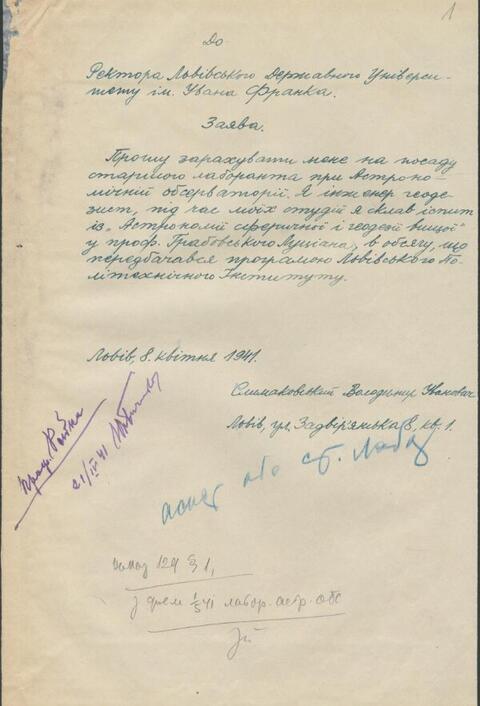 1
До
Ректора Львівського Державного Універси-
тету ім. Івана Франка.
Заява.
Прошу зарахувати мене на посаду
старшого лаборанта при Астроно-
мічній обсерваторії. Я інженер геоде-
зист, під час моїх студій я склав іспит
із „Астрономії сферичної і геодезії вищої"
у проф. Грабовського Луціана, в обсягу, що
передбачався програмою Львівського По-
літехнічного Інституту.
Львів, 8. квітня 1941.
Володимир Іванович
Львів, ул. Задвірянська 8, кв. 1.
проф.
21/IV 41
або ст. Лаб
129 § 1,
з днем 1/5 41 лабор. астр. обс